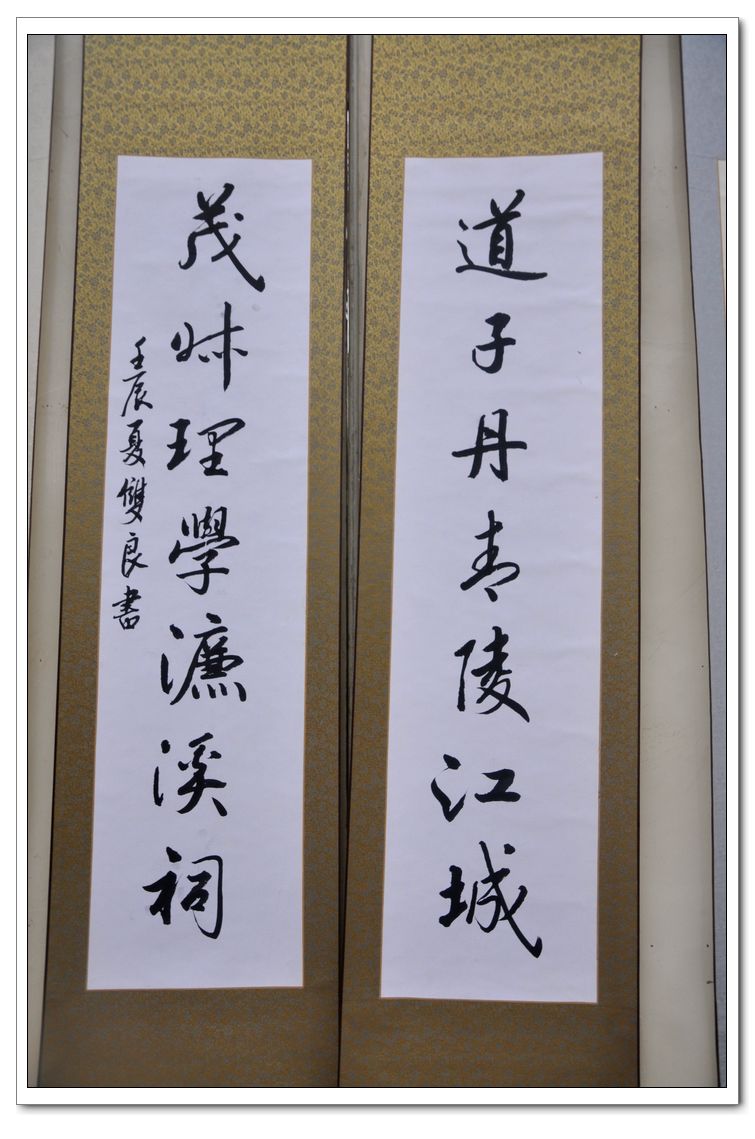 道子丹青陵江城
茂叔理學濂溪祠
壬辰夏雙良書